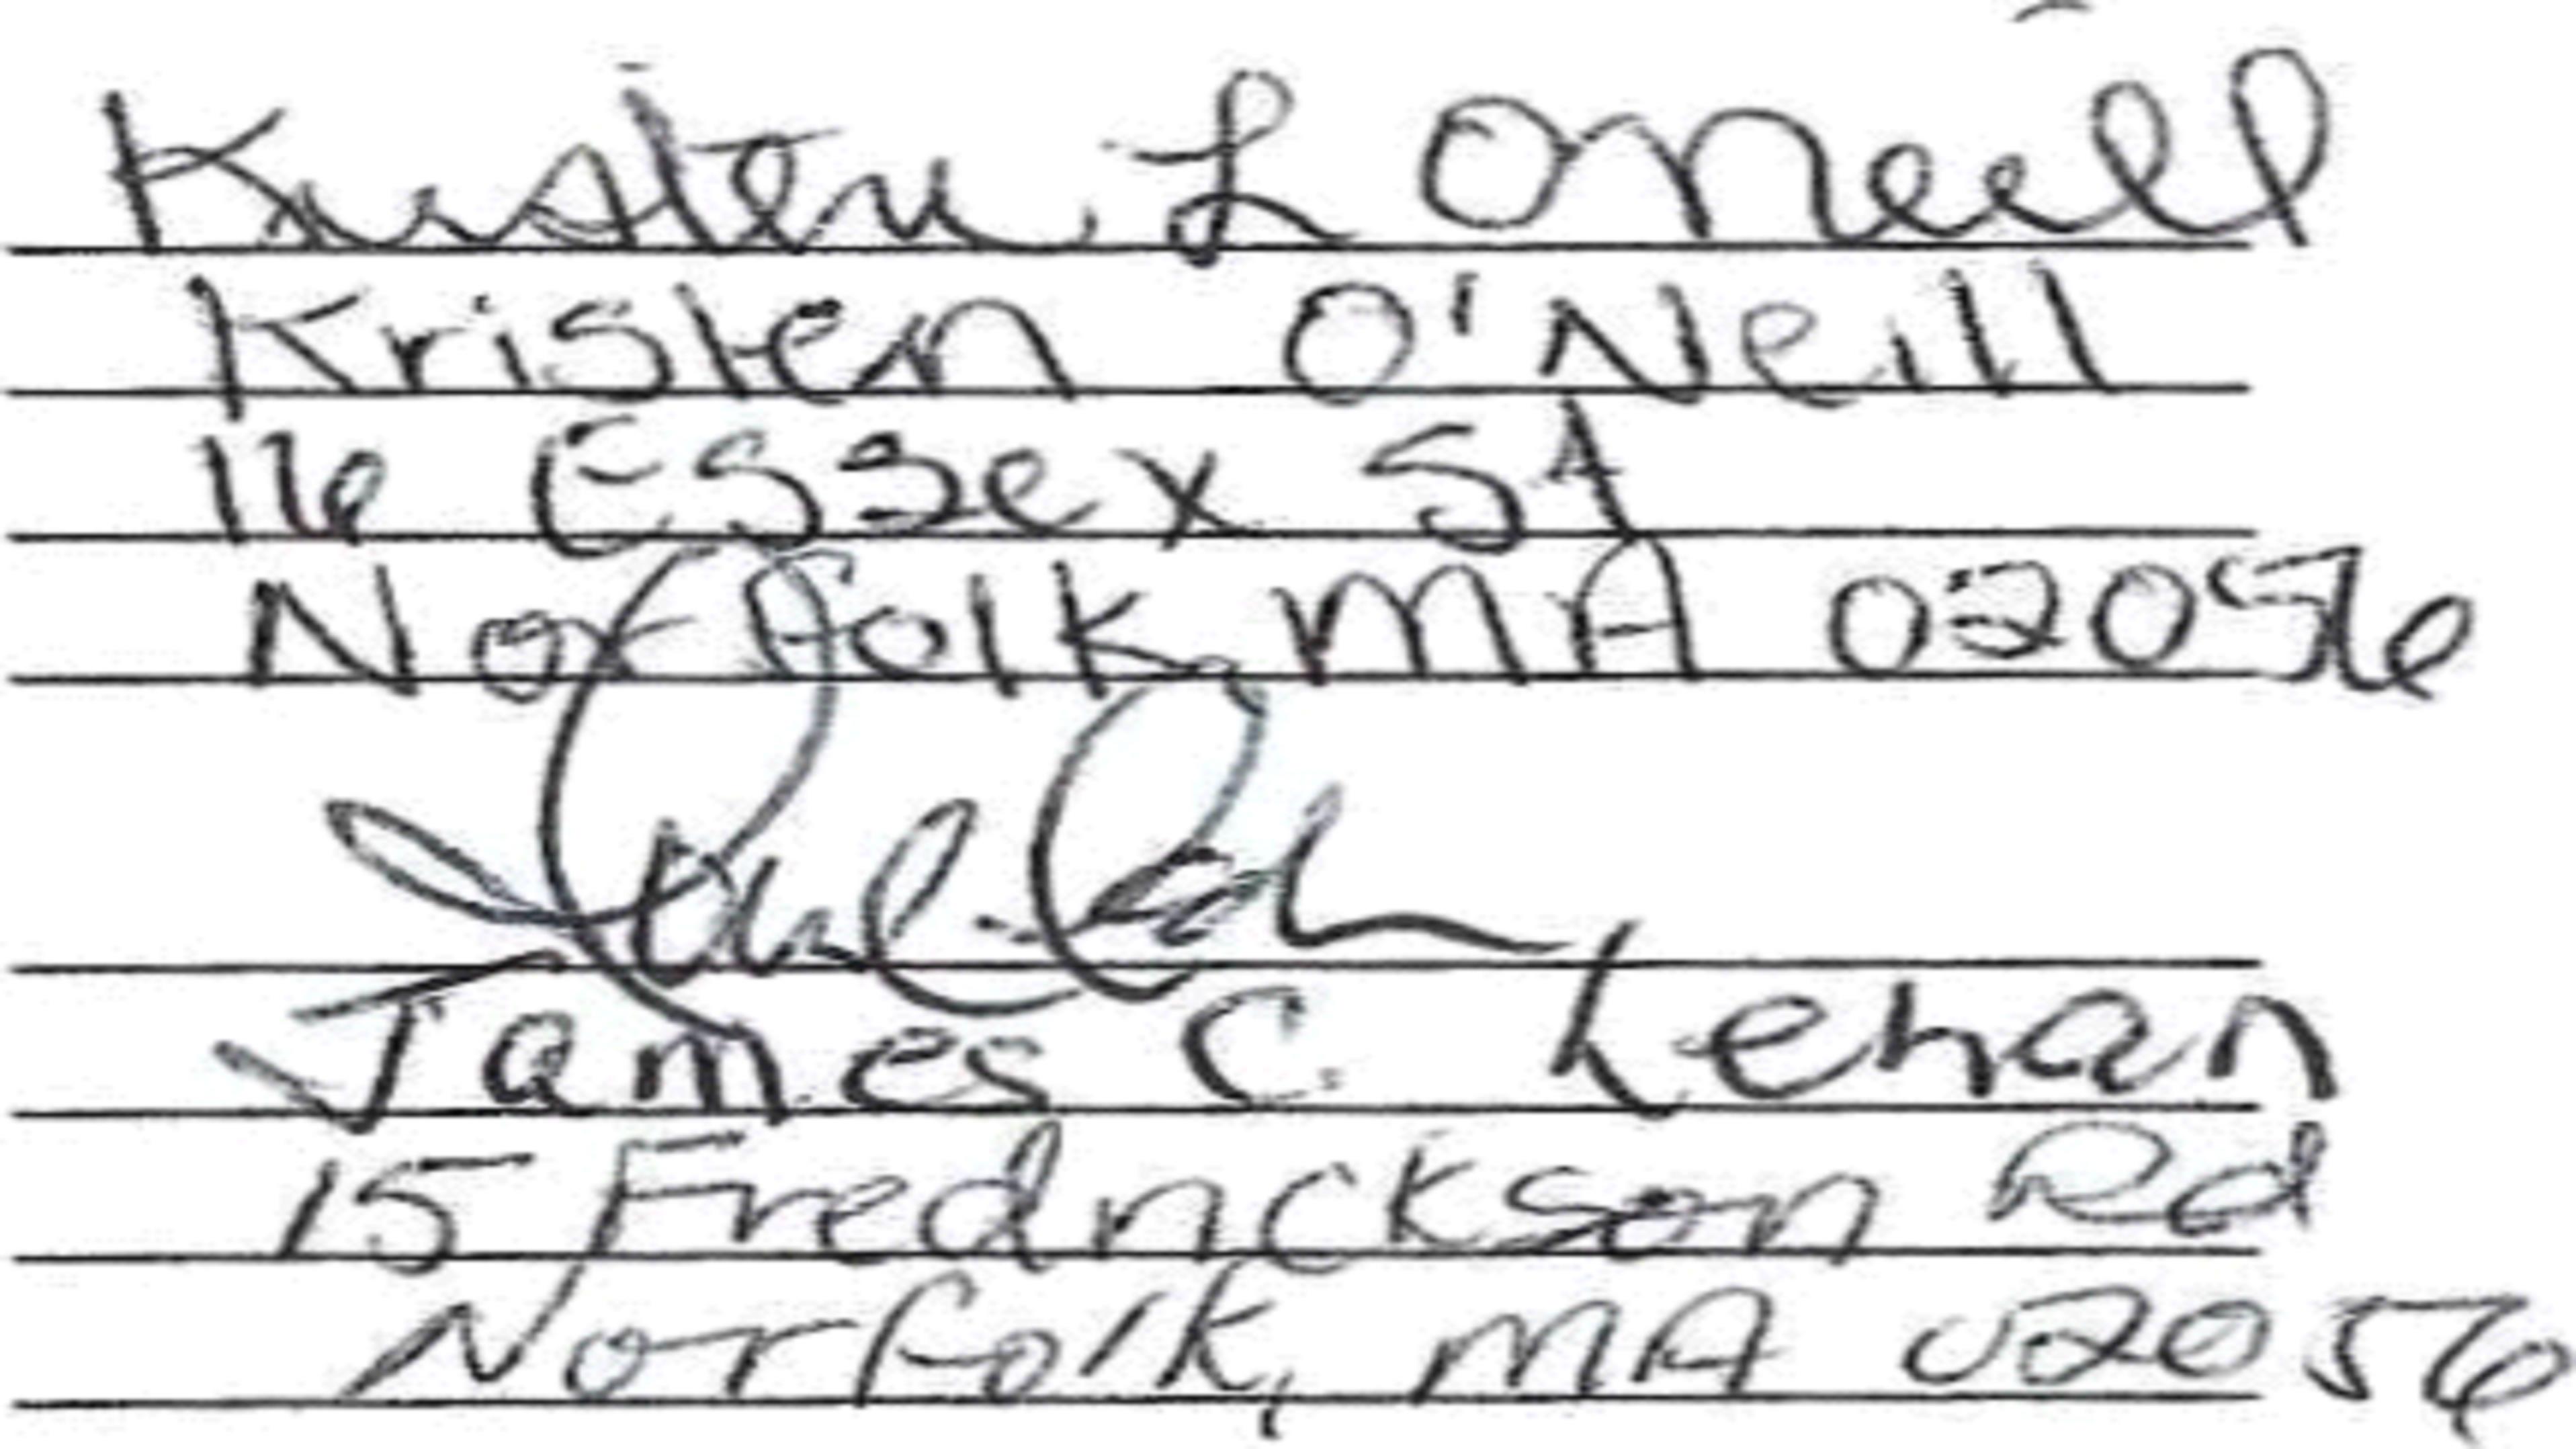 Kristen L ONeill
Kristen O'Neill
16 Essex St
Norfolk, MA 02056
James C. Lehan
15 Fredrickson Rd
Norfolk, MA 02056